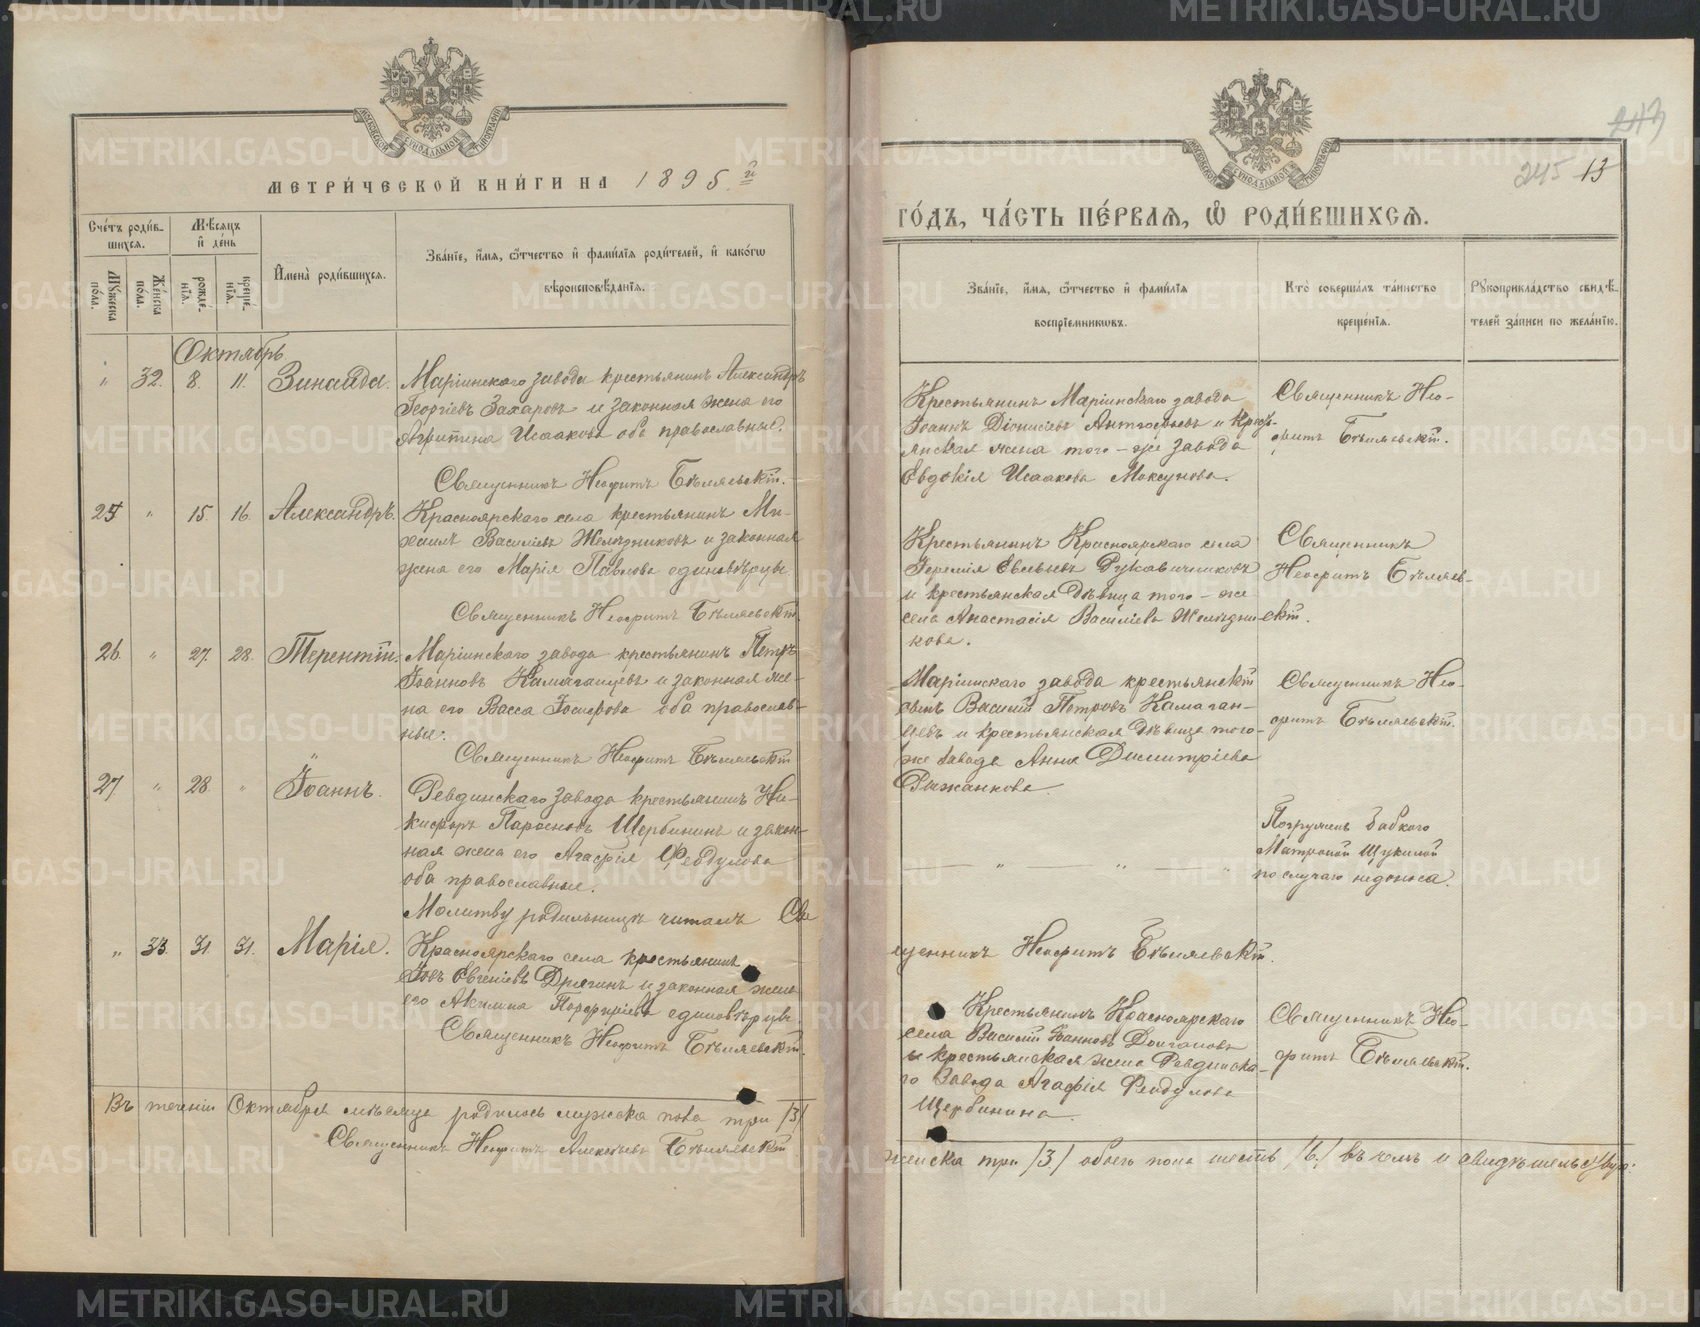 МЕТРИ́ЧЕСКОЙ КНИ́ГИ НА 1895.й
Сче́тъ роди́в-
шихсѧ.
Мѣ́сяцъ
и҆ де́нь
Мꙋ́жеска
по́ла.
Же́нска
по́ла.
рожде́-
нїѧ.
креще́-
нїѧ.
И҆мена̀ роди́вшихсѧ.
Зва́нїе, и҆́мѧ, ѻ҆́тчество и҆ фами́лїѧ роди́телей, и҆ како́гѡ
вѣроисповѣ́данїѧ.
Октябрь
" 32. 8. 11. Зинаида.
Маріинскаго завода крестьянинъ Александръ
Георгіевъ Захаровъ и законная жена его
Агрипина Исаакова оба православные.
Священникъ Неофитъ Бѣляевскій.
25 " 15. 16. Александръ.
Красноярскаго села крестьянинъ Ми-
хаилъ Василіевъ Желѣзниковъ и законная
жена его Марія Павлова единовѣрцы.
Священникъ Неофитъ Бѣляевскій.
26. " 27. 28. Терентій.
Маріинскаго завода крестьянинъ Петръ
Іоанновъ Камаганцевъ и законная же-
на его Васса Іосифова оба православ-
ные.
Священникъ Неофитъ Бѣляевскій
27 " 28. " Іоаннъ.
Ревдинскаго завода крестьянинъ Ни-
кифоръ Парѳеновъ Щербининъ и закон-
ная жена его Агафія Феодулова
оба православные.
Молитву родильницѣ читалъ Свя
" 33. 31. 31. Марія.
Красноярскаго села крестьянинъ
Іовъ Евгеніевъ Дрягинъ и законная жена
его Акилина Порфиріева единовѣрцы.
Священникъ Неофитъ Бѣляевскій.
Въ теченіи Октября мѣсяца родилось мужска пола три /3/
Священникъ Неофитъ Алексѣевъ Бѣляевскій
243
245 13
ГО́ДЪ, ЧА́СТЬ ПЕ́РВАѦ, Ѽ РОДИ́ВШИХСѦ.
Зва́нїе, и҆́мѧ, ѻ҆́тчество и҆ фами́лїѧ
воспрїемникѡвъ.
Кто̀ соверша́лъ та́инство
креще́нїѧ.
Рꙋкоприкла́дство свидѣ́-
телей за́писи по жела́нїю.
Крестьянинъ Маріинскаго завода
Іоаннъ Діонисіевъ Антоѳьевъ и крест-
янская жена того-же завода
Евдокія Исаакова Максунова.
Священникъ Нео-
фитъ Бѣляевскій.
Крестьянинъ Красноярскаго села
Іеремія Евсѣевъ Рукавишниковъ
и крестьянская дѣвица того-же
села Анастасія Василіева Желѣзни-
кова.
Священникъ
Неофитъ Бѣляев-
скій.
Маріинскаго завода крестьянскій
сынъ Василій Петровъ Камаган-
цевъ и крестьянская дѣвица того-
же завода Анна Димитріева
Рыжанкова.
Священникъ Нео-
фитъ Бѣляевскій.
Погруженъ бабкою
Матроной Щукиной
по случаю недоноса.
щенникъ Неофитъ Бѣляевскій.
Крестьянинъ Красноярскаго
села Василій Іоанновъ Долгановъ
и крестьянская жена Ревдинска-
го завода Агафія Феодулова
Щербинина.
Священникъ Нео-
фитъ Бѣляевскій.
женска три /3/ обоего пола шесть /6/ въ чемъ и свидѣтельствую:
METRIKI.GASO-URAL.RU